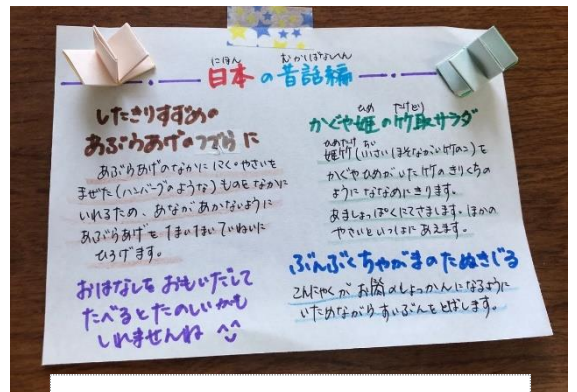 にほん むかしばなしへん
日本の昔話編
したきりすずめの
あぶらあげのつづらに
あぶらあげのなかににくややさいを
まぜた(ハンバーグのような)ものをなかに
いれるため、あながあかないように
あぶらあげを1まい1まいていねいに
ひろげます。
おはなしをおもいだして
たべるとたのしいかも
しれませんね ^^
ひめ たけとり
かぐや姫の竹取サラダ
ひめたけ ちい
姫竹(小さいほそながい竹のこ)を
かぐやひめがいた竹のきりくちの
ようにななめにきります。
あましょっぱくにてさまします。ほかの
やさいといっしょにあえます。
ぶんぶくちゃがまのたぬきじる
こんにゃくがお肉のしょっかんになるように
いためながらすいぶんをとばします。